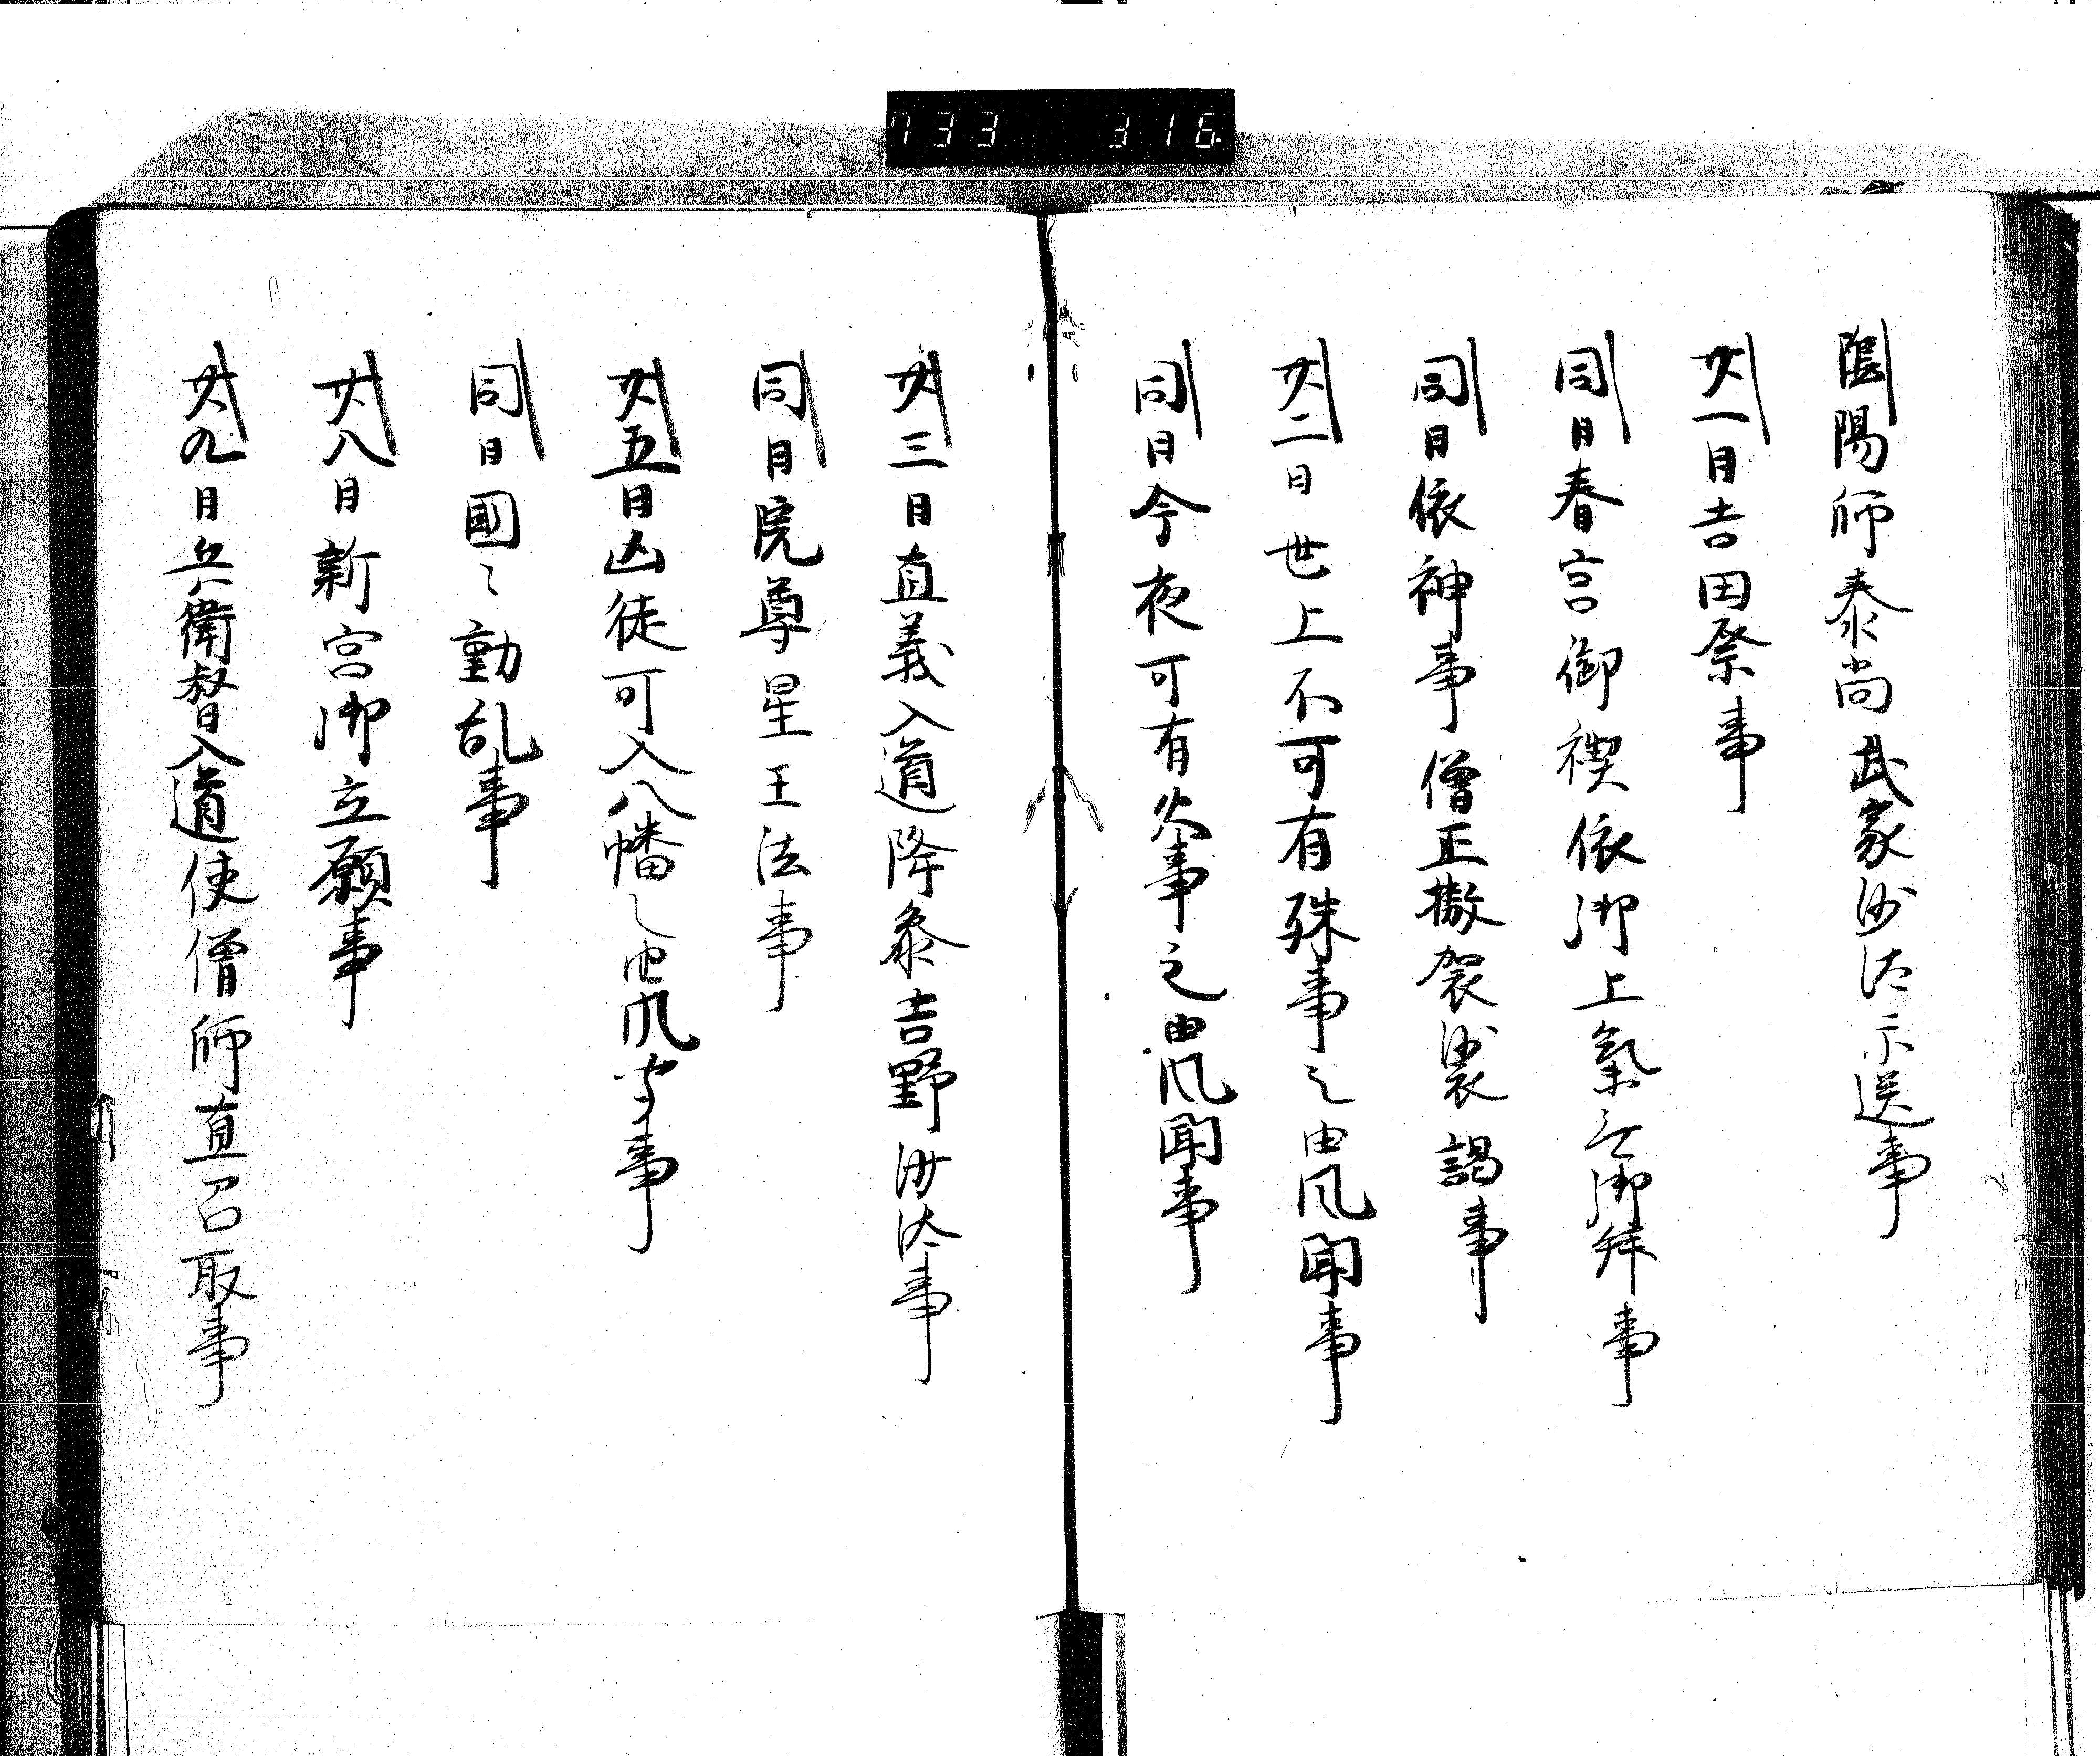 733 316
陰陽師泰尚武家沙汰示送事
廿一日吉田祭事
同日春宮御禊依御上氣無御拜事
同日依神事僧正撤袈裟謁事
廿二日世上不可有殊事之由風聞事
同日今夜可有火事之由風聞事
廿三日直義入道降參吉野沙汰事
同日院尊星王法事
廿五日凶徒可入八幡之由風聞事
同日國々動乱事
廿八日新宮御立願事
廿九日兵衛督入道使僧師直召取事